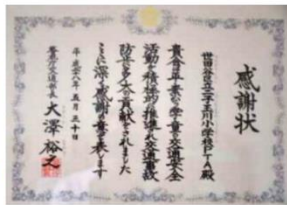 感謝状
世田谷区立二子玉川小学校PTA殿
貴会は平素から学童の交通安全
活動を積極的に推進され交通事故
防止に多大な貢献をされました
ここに深く感謝の意を表します
平成二十八年五月三十日
警視庁交通部長 大澤裕之